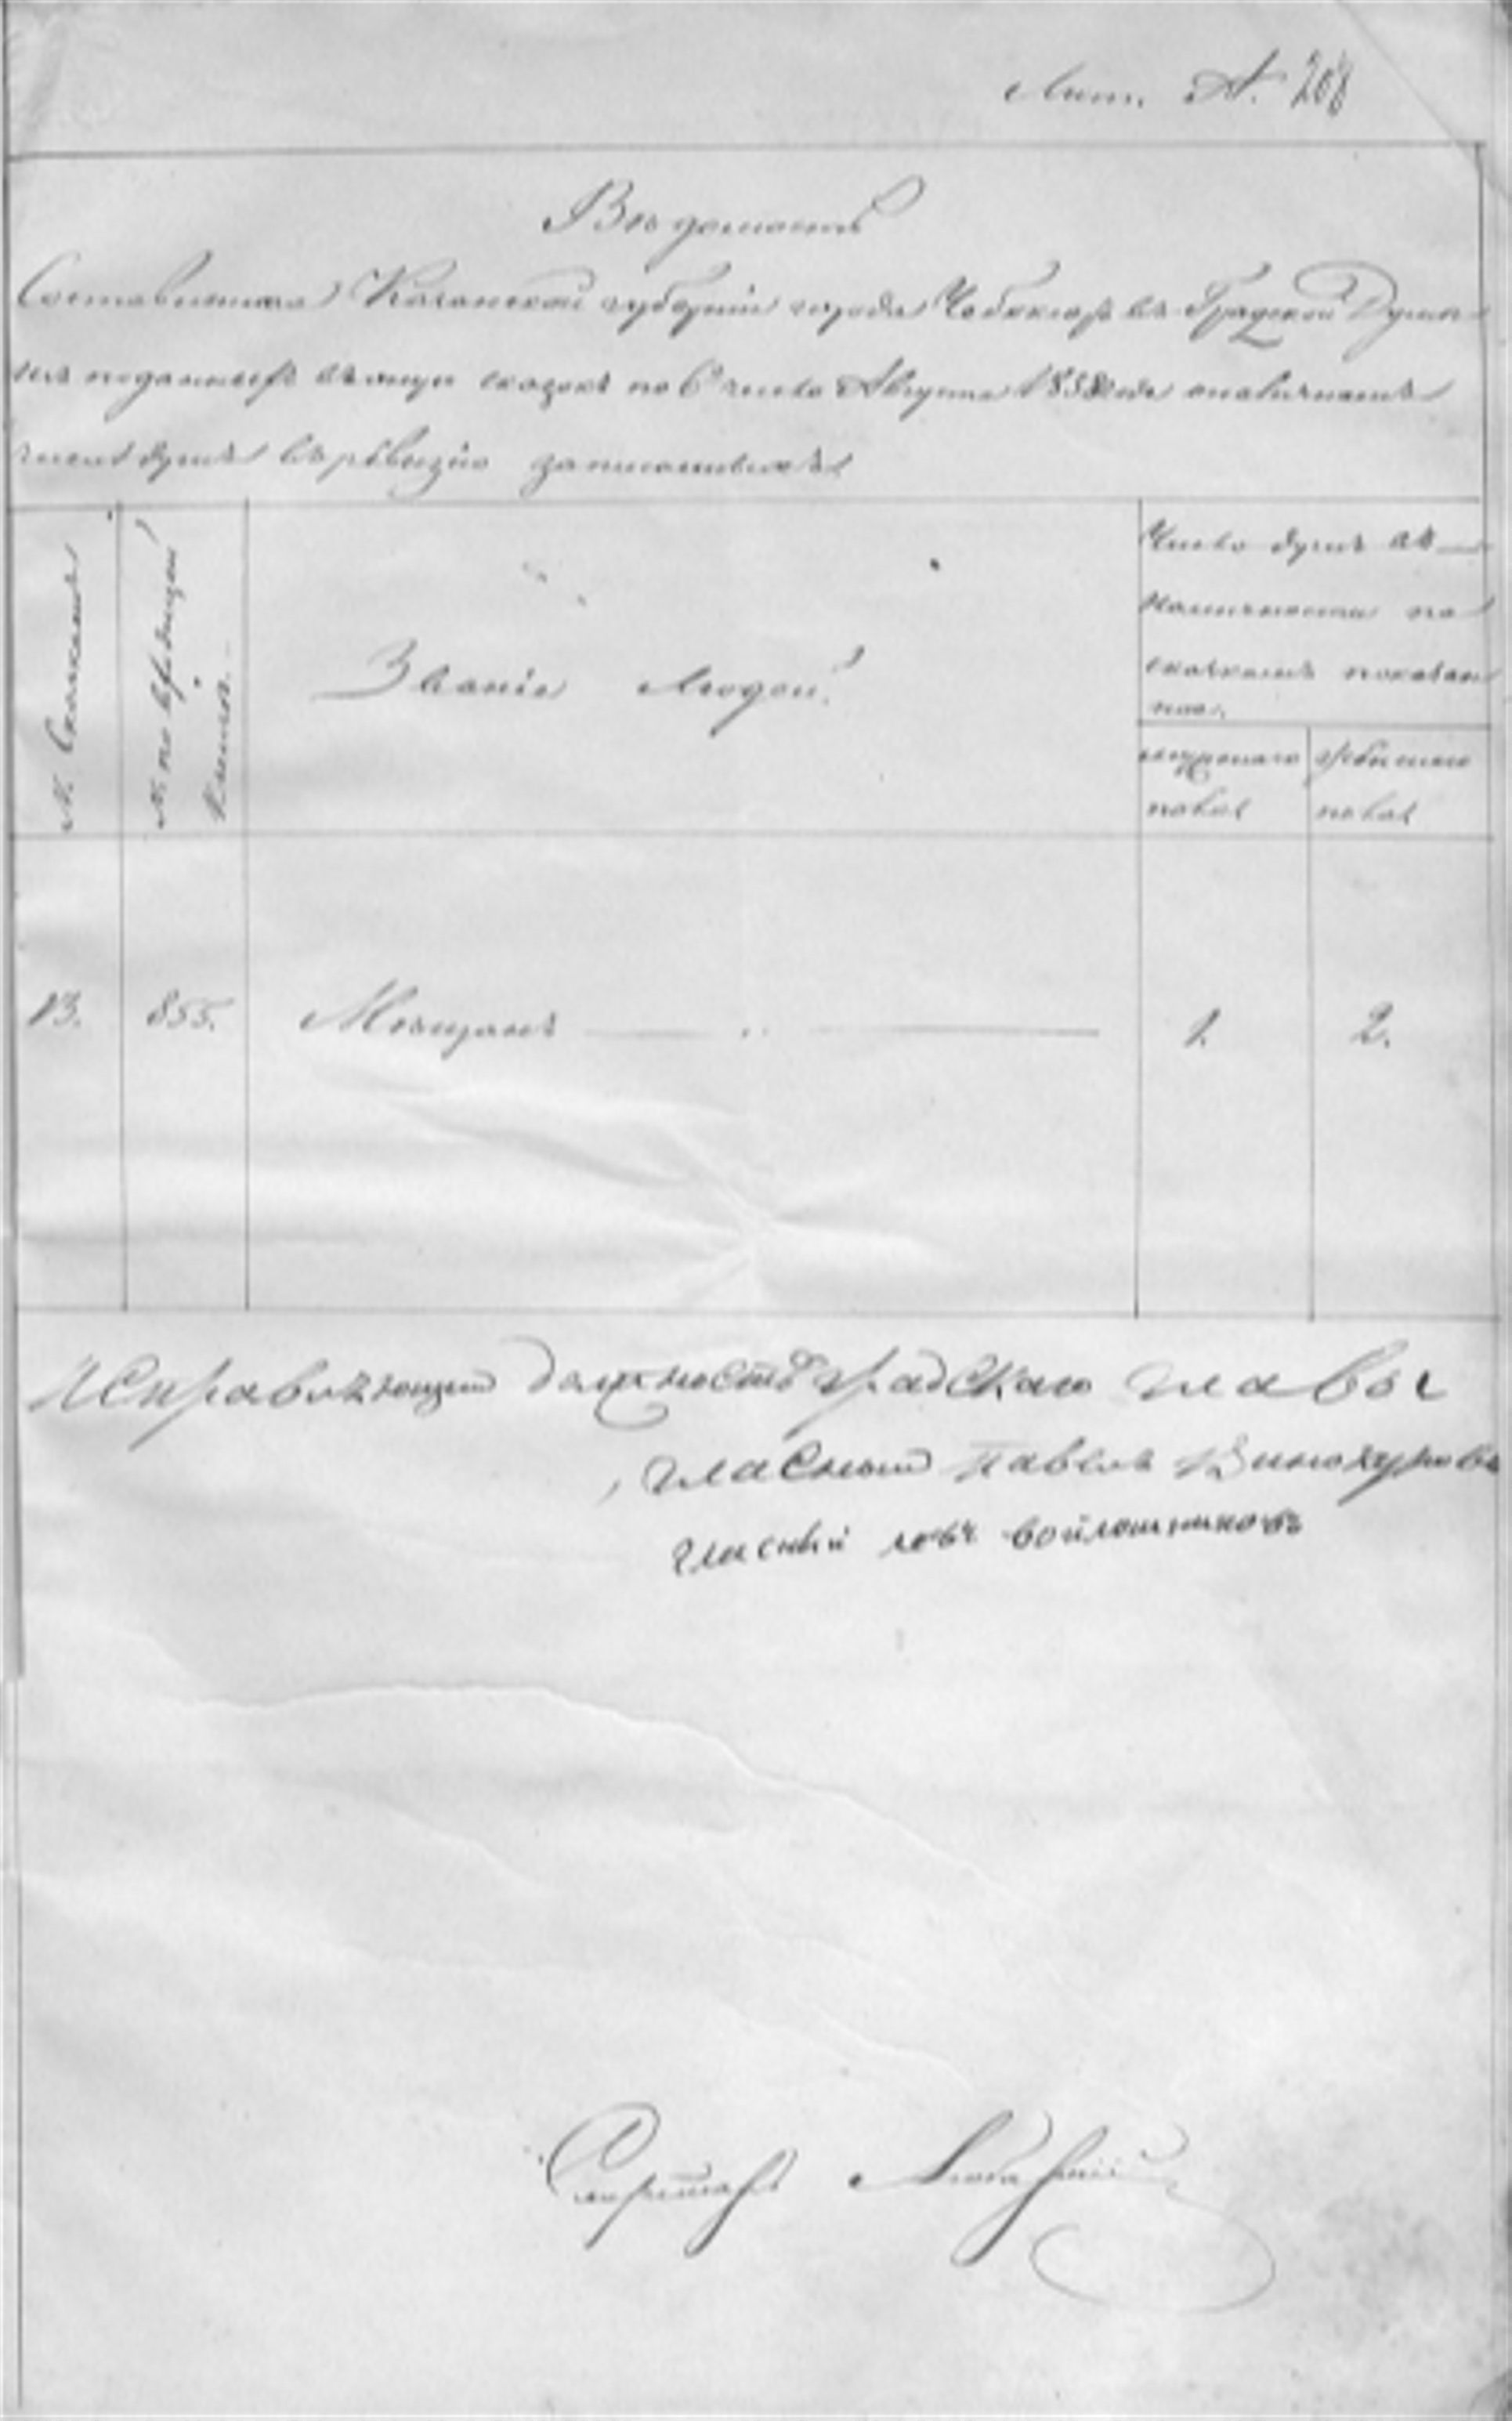 Лит. А. 208
Вѣдомость
Составленная Казанской губернiи города Чебоксар въ Градской Думѣ
изъ поданныхъ въ оную сказокъ по 6е число Августа 1858 года о наличномъ
числѣ душъ въ ревизiю записанныхъ
№ Сказкамъ
№ по
Званiе людей.
Число душъ въ
наличности по
сказкамъ показан
ное.
мужеска женска
пола пола
13. 855. Мѣщанъ 1. 2.
Исправляющий должность градскаго главы
гласный Павелъ Винокуровъ
гласный войлошниковъ
Секретарь